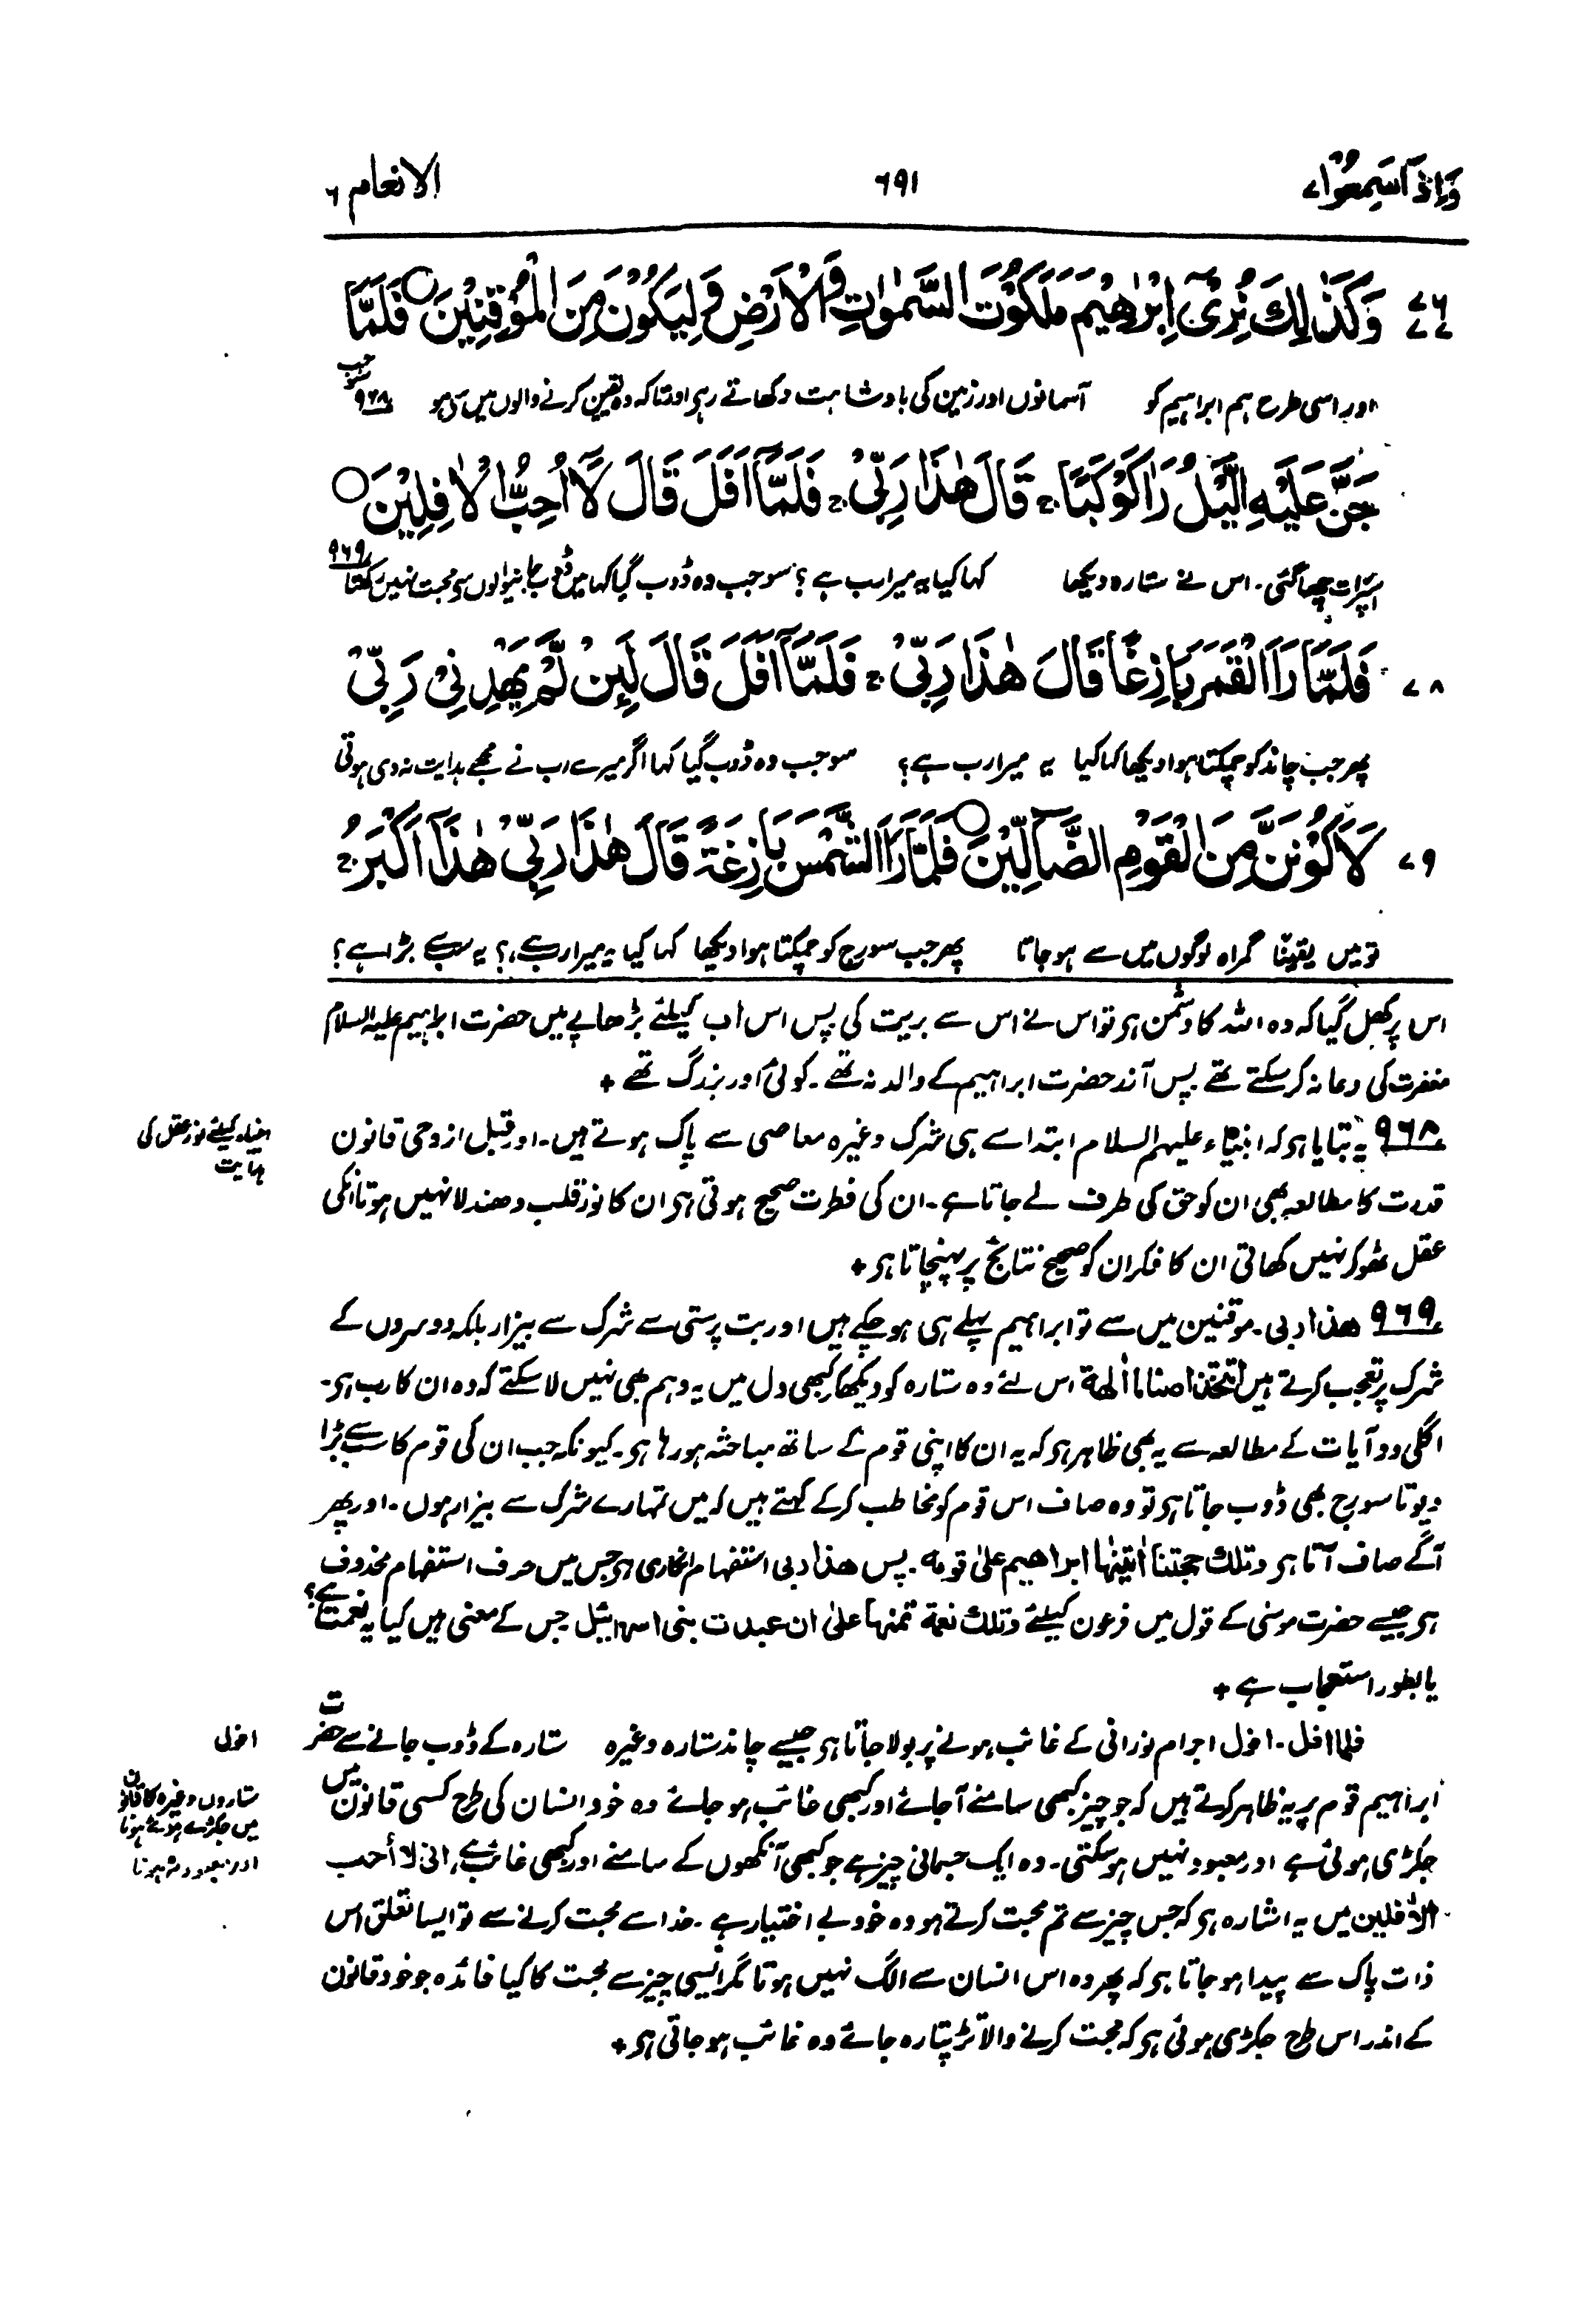 وَاِذَا سَمِعُوْا ۷
۶۹۱
الانعام ۶
۷۶ ۷۷ وَكَذٰلِكَ نُرِیْۤ اِبْرٰهِیْمَ مَلَكُوْتَ السَّمٰوٰتِ وَالْاَرْضِ وَلِیَكُوْنَ مِنَ الْمُوْقِنِیْنَ ○ فَلَمَّا
اور اسی طرح ہم ابراہیم کو آسمانوں اور زمین کی بادشاہت دکھاتے رہے اور تاکہ وہ یقین کرنے والوں میں سے ہو ۹۶۸ سو جب
جَنَّ عَلَیْهِ الَّیْلُ رَاٰ كَوْكَبًا ۚ قَالَ هٰذَا رَبِّیْ ۚ فَلَمَّاۤ اَفَلَ قَالَ لَاۤ اُحِبُّ الْاٰفِلِیْنَ ○
اسپر رات چھا گئی۔ اس نے ستارہ دیکھا کہا کیا یہ میرا رب ہے؟ سو جب وہ ڈوب گیا کہا میں ڈوب جانیوالوں سے محبت نہیں رکھتا ۹۶۹
۷۸ فَلَمَّا رَاَ الْقَمَرَ بَازِغًا قَالَ هٰذَا رَبِّیْ ۚ فَلَمَّاۤ اَفَلَ قَالَ لَئِنْ لَّمْ یَهْدِنِیْ رَبِّیْ
پھر جب چاند کو چمکتا ہوا دیکھا کہا کیا یہ میرا رب ہے؟ سو جب وہ ڈوب گیا کہا اگر میرے رب نے مجھے ہدایت نہ دی ہوتی
۷۹ لَاَكُوْنَنَّ مِنَ الْقَوْمِ الضَّآلِّیْنَ ○ فَلَمَّا رَاَ الشَّمْسَ بَازِغَةً قَالَ هٰذَا رَبِّیْ هٰذَاۤ اَكْبَرُ ۚ
تو میں یقیناً گمراہ لوگوں میں سے ہو جاتا پھر جب سورج کو چمکتا ہوا دیکھا کہا کیا یہ میرا رب ہے؟ یہ سب سے بڑا ہے؟
اس پر کھل گیا کہ وہ اللہ کا دشمن ہو تو اس نے اس سے بریت کی پس اس اب کیلئے بڑھاپے میں حضرت ابراہیم علیہ السلام
مغفرت کی دعا نہ کر سکتے تھے پس آزر حضرت ابراہیم کے والد نہ تھے۔ کوئی اور بزرگ تھے +
۹۶۸ یہ بتایا ہو کہ انبیاء علیہم السلام ابتدا سے ہی شرک وغیرہ معاصی سے پاک ہوتے ہیں۔ اور قبل از وحی قانون
انبیاء کیلئے نور عقل کی ہدایت
قدرت کا مطالعہ بھی ان کو حق کی طرف لے جاتا ہے۔ ان کی فطرت صحیح ہوتی ہو ان کا نور قلب دھندلا نہیں ہوتا انکی
عقل ٹھوکر نہیں کھاتی ان کا فکر ان کو صحیح نتائج پر پہنچاتا ہو +
۹۶۹ ھذا ربی۔ موقنین میں سے تو ابراہیم پہلے ہی ہو چکے ہیں اور بت پرستی سے شرک سے بیزار بلکہ دوسروں کے
شرک پر تعجب کرتے ہیں اتتخذ اصناما اٰلھة اس لئے وہ ستارہ کو دیکھ کر کبھی دل میں یہ وہم بھی نہیں لا سکتے کہ وہ ان کا رب ہو۔
اگلی دو آیات کے مطالعہ سے یہ بھی ظاہر ہو کہ یہ ان کا اپنی قوم کے ساتھ مباحثہ ہو رہا ہو۔ کیونکہ جب ان کی قوم کا سب سے بڑا
دیوتا سورج بھی ڈوب جاتا ہو تو وہ صاف اس قوم کو مخاطب کر کے کہتے ہیں کہ میں تمہارے شرک سے بیزار ہوں۔ اور پھر
آگے صاف آتا ہو وتلك حجتنا اٰتینٰھا ابراھیم علیٰ قومه۔ پس ھذا ربی استفہام انکاری ہو جس میں حرف استفہام محذوف
ہو جیسے حضرت موسیٰ کے قول میں فرعون کیلئے وتلك نعمة تمنھا علیٰ ان عبدت بنی اسرائیل جس کے معنی ہیں کیا یہ نعمت ہے؟
یا بطور استعجاب ہے +
فلما افل۔ افول اجرام نورانی کے غائب ہونے پر بولا جاتا ہو جیسے چاند ستارہ وغیرہ ستارہ کے ڈوب جانے سے حضرت
افول
ابراہیم قوم پر یہ ظاہر کرتے ہیں کہ جو چیز کبھی سامنے آجائے اور کبھی غائب ہو جائے وہ خود انسان کی طرح کسی قانون میں
ستاروں وغیرہ کا قانون میں جکڑے ہوئے ہونا
جکڑی ہوئی ہے اور معبود نہیں ہو سکتی۔ وہ ایک جسمانی چیز ہے جو کبھی آنکھوں کے سامنے اور کبھی غائب ہے، انی لا أحب
اور معبود نہ ہونا
الاٰفلین میں یہ اشارہ ہو کہ جس چیز سے تم محبت کرتے ہو وہ خود بے اختیار ہے۔ خدا سے محبت کرنے سے تو ایسا تعلق اس
ذات پاک سے پیدا ہو جاتا ہو کہ پھر وہ اس انسان سے الگ نہیں ہوتا مگر ایسی چیز سے محبت کا کیا فائدہ جو خود قانون
کے اندر اس طرح جکڑی ہوئی ہو کہ محبت کرنے والا تڑپتا رہ جائے وہ غائب ہو جاتی ہو +